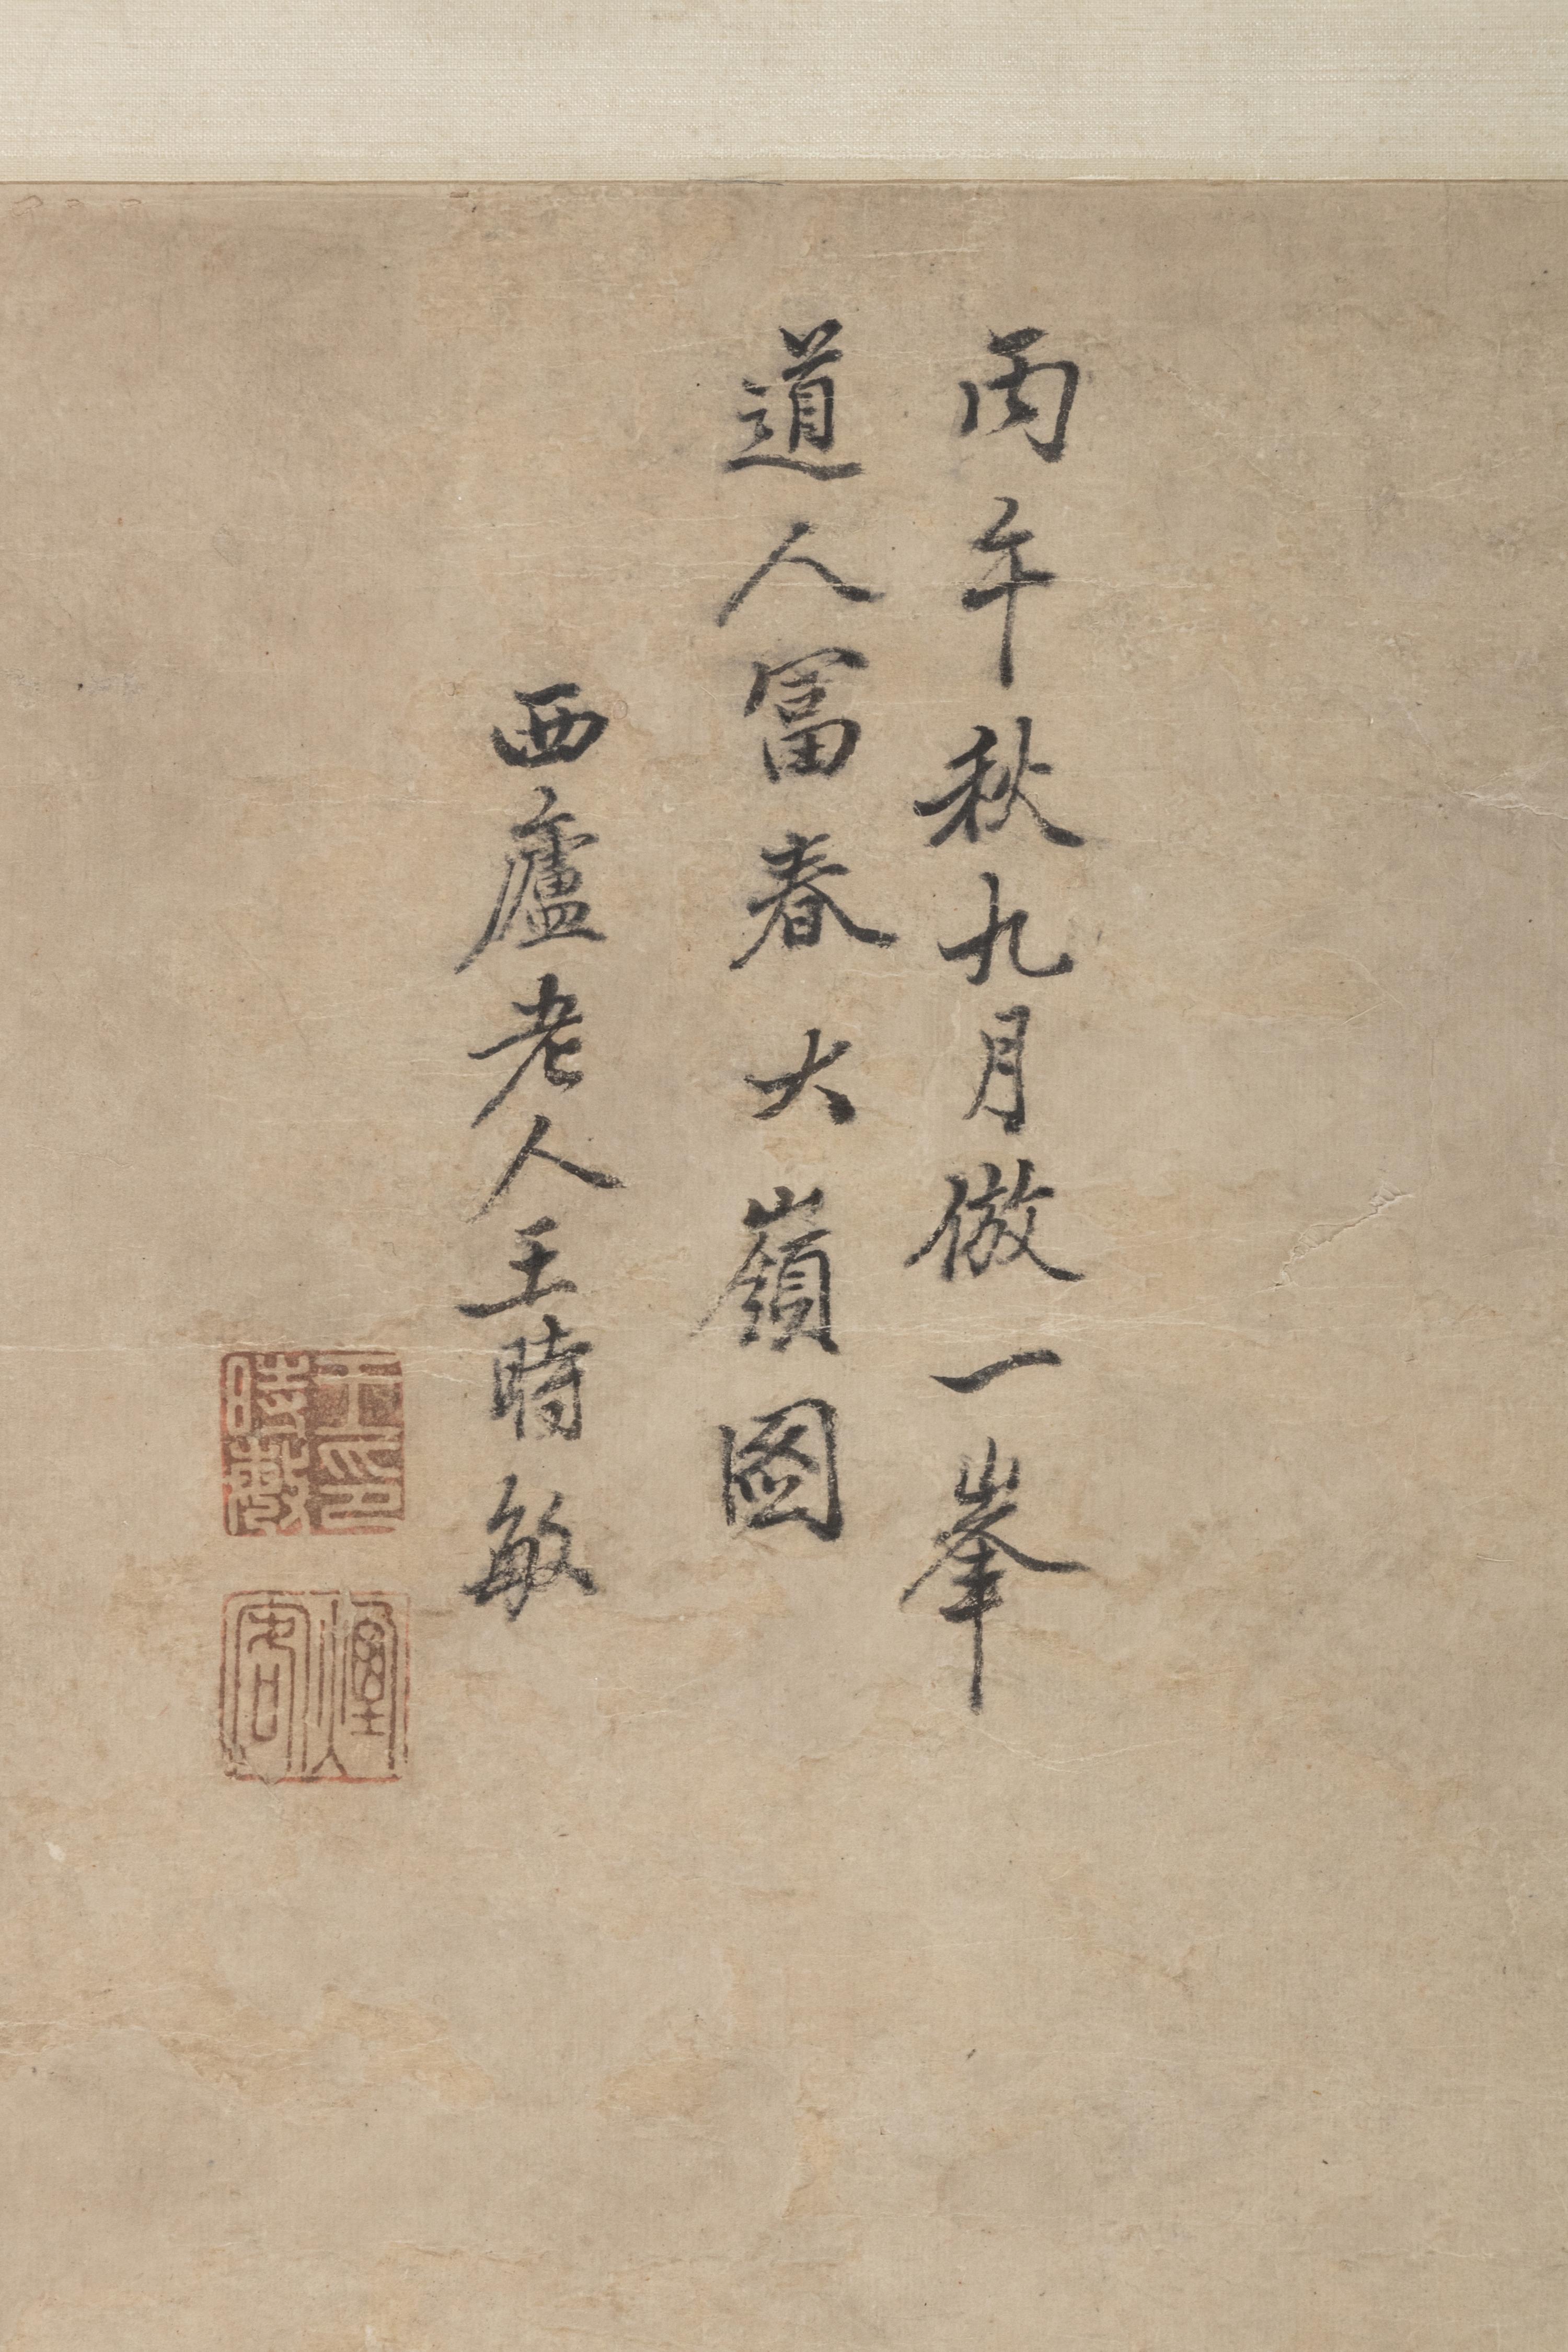 丙午秋九月倣一峯
道人富春大嶺圖
西廬老人王時敏
王時敏印
煙客